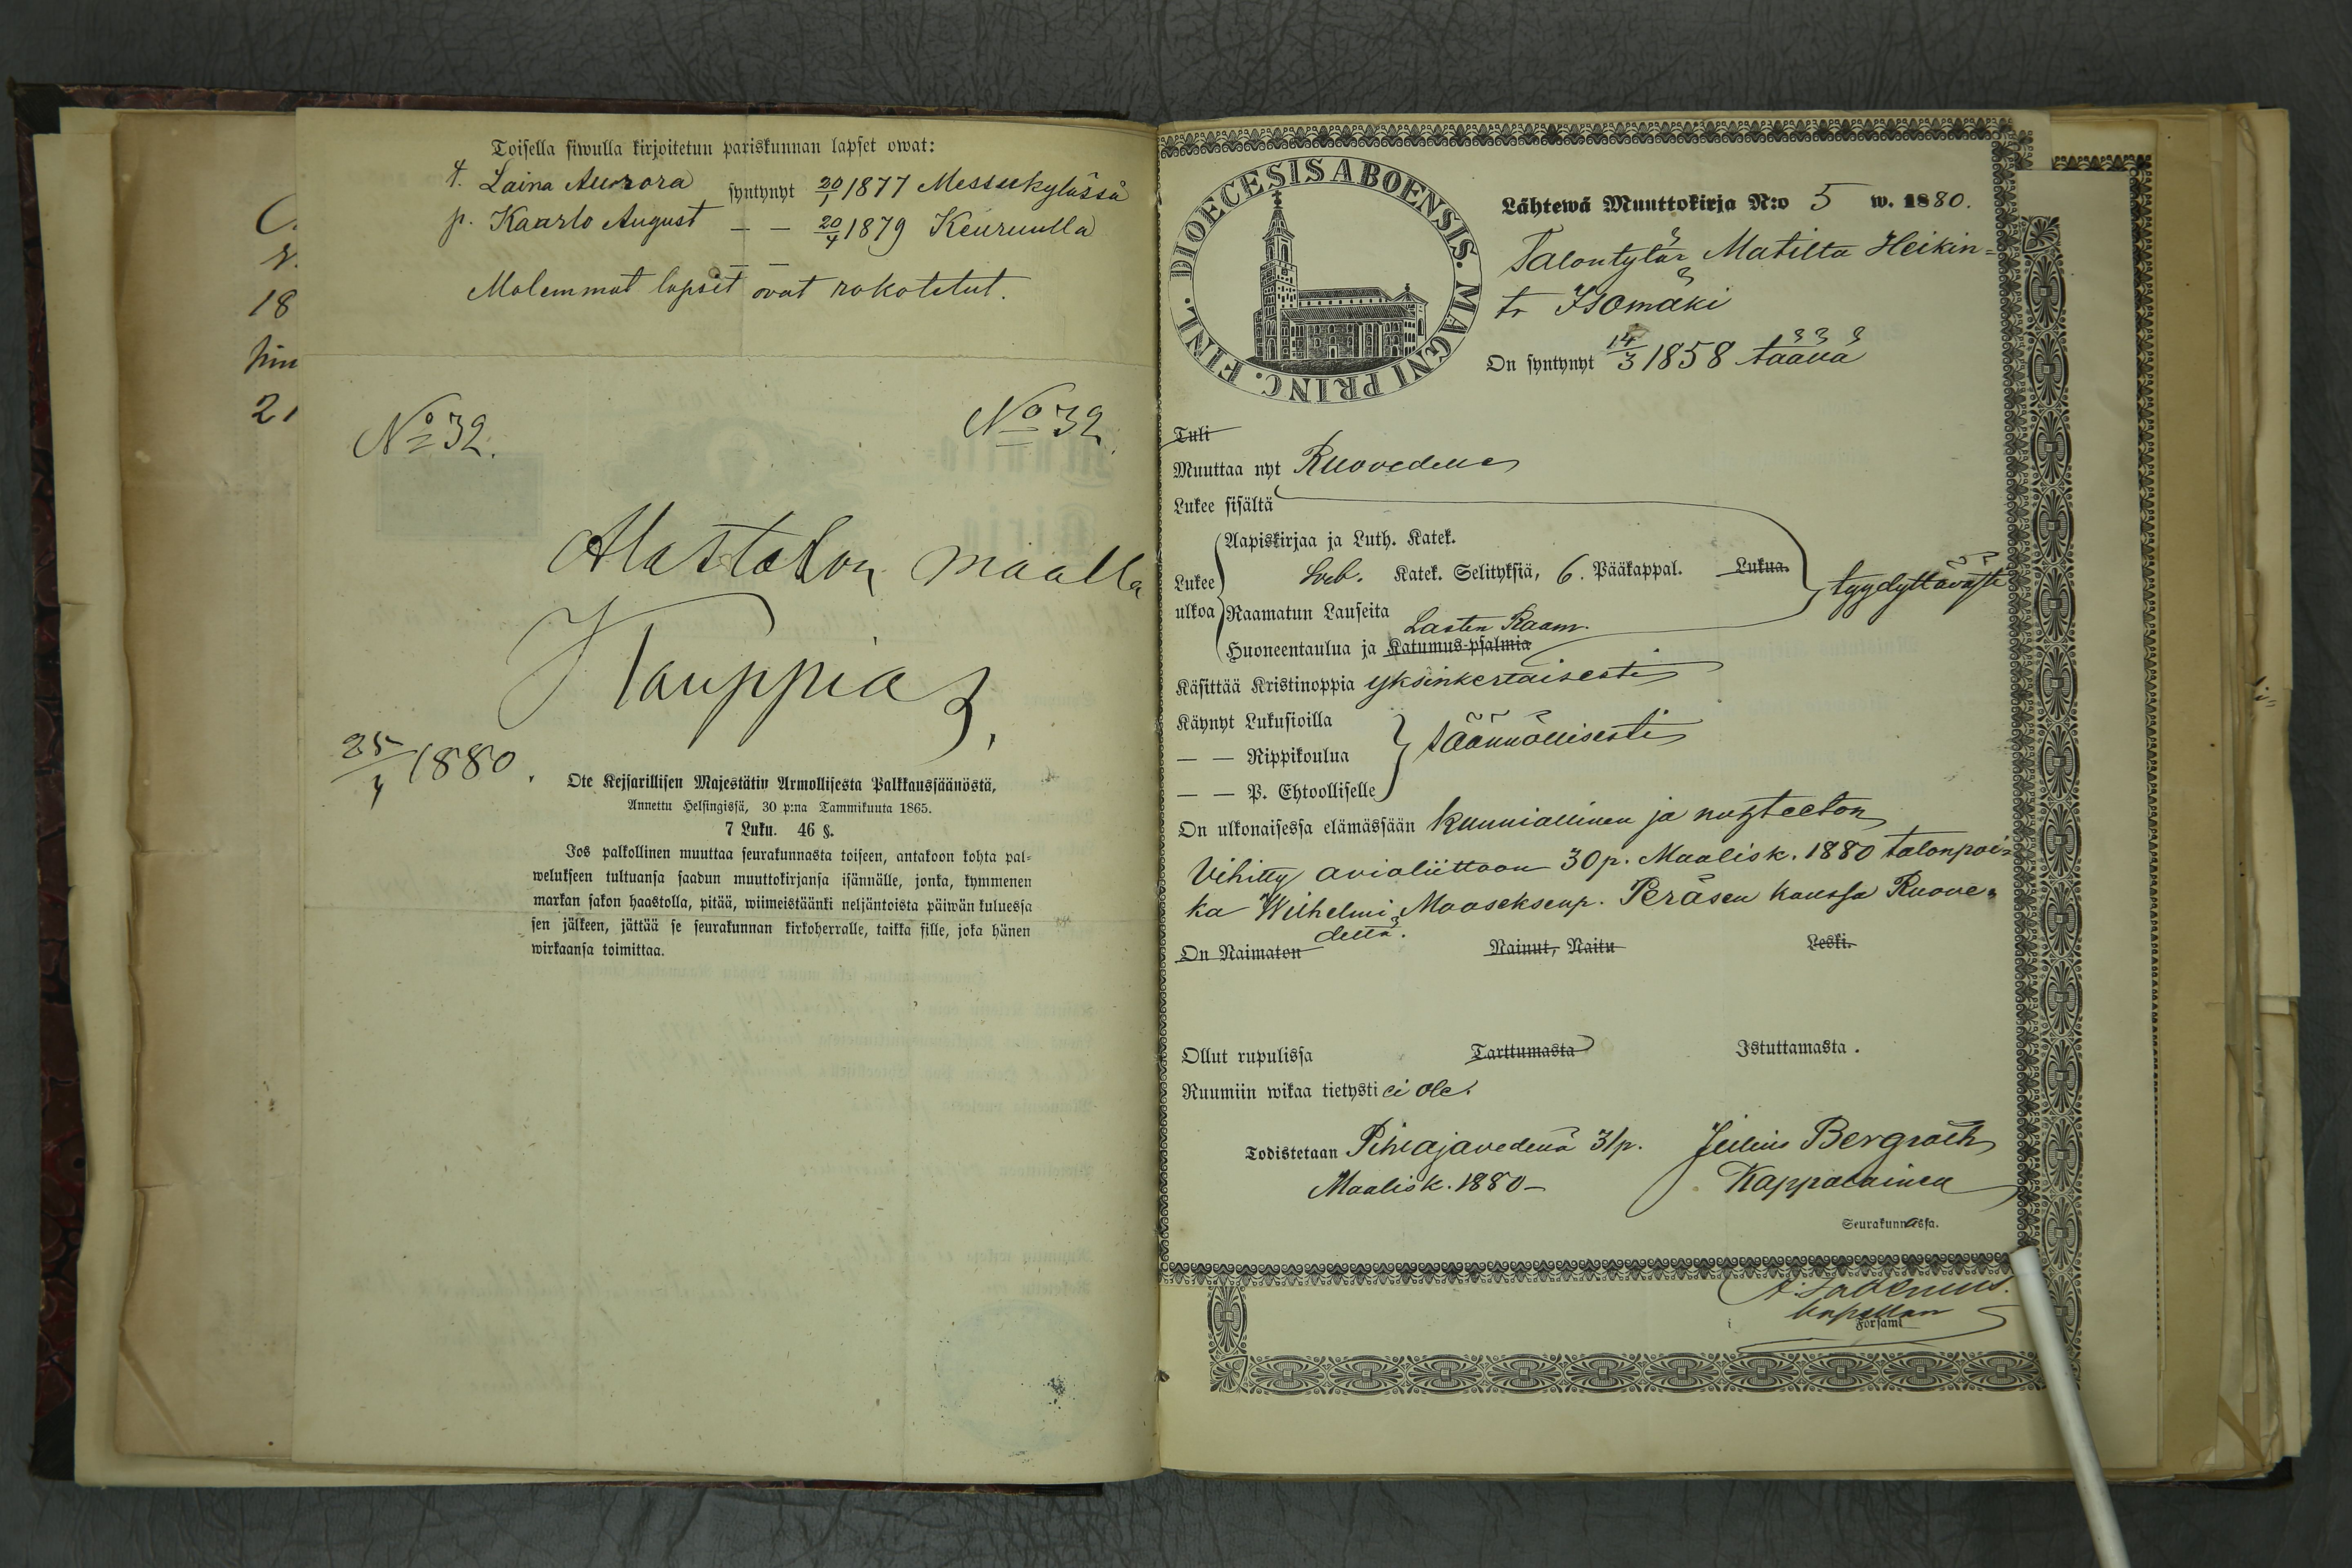 C.
18
21
Toisella siwulla kirjoitetun pariskunnan lapset owat:
t. Laina Aurora syntynyt 20/1 1877 Messukylässä
p. Kaarlo August — — 20/4 1879 Keuruulla
— —
Molemmat lapset ovat rokotetut.
No 32. No 32
Alastalon maalla
Kauppias,
25/4 1880.
Ote Kejsarillisen Majestätin Armollisesta Palkkaussäänöstä,
Annettu Helsingissä, 30 p:na Tammikuuta 1865.
7 Luku. 46 §.
Jos palkollinen muuttaa seurakunnasta toiseen, antakoon kohta pal-
welukseen tultuansa saadun muuttokirjansa isännälle, jonka, kymmenen
markan sakon haastolla, pitää, wiimeistäänki neljäntoista päiwän kuluessa
sen jälkeen, jättää se seurakunnan kirkoherralle, taikka sille, joka hänen
wirkaansa toimittaa.
DIOECESIS ABOENSIS. MAGNI PRINC. FINL.
Lähtewä Muuttokirja N:o 5 w. 1880.
Talontytär Matilta Heikin-
tr Isomäki
On syntynyt 14/3 1858 täävä
Tuli
Muuttaa nyt Ruovedelle
Lukee sisältä
Aapiskirjaa ja Luth. Katek.
Lukee Sveb. Katek. Selityksiä, 6. Pääkappal. Lukua. tyydyttävästi
ulkoa Raamatun Lauseita
Lasten Raam.
Huoneentaulua ja Katumus-psalmia
Käsittää Kristinoppia yksinkertaisesti
Käynyt Lukusioilla
— — Rippikoulua säännöllisesti
— — P. Ehtoolliselle
On ulkonaisessa elämässään kunniallinen ja nuhteeton
Vihitty avioliittoon 30 p. Maalisk. 1880 talonpoi-
ka Wilhelmi Mooseksenp. Peräsen kanssa Ruove-
deltä.
On Naimaton Nainut, Naitu Leski.
Ollut rupulissa Tarttumasta Istuttamasta.
Ruumiin wikaa tietysti ei ole.
Todistetaan Pihlajavedellä 31 p. Julius Bergroth
Maalisk. 1880 — Kappalainen
Seurakunnassa.
kapellan
Församl